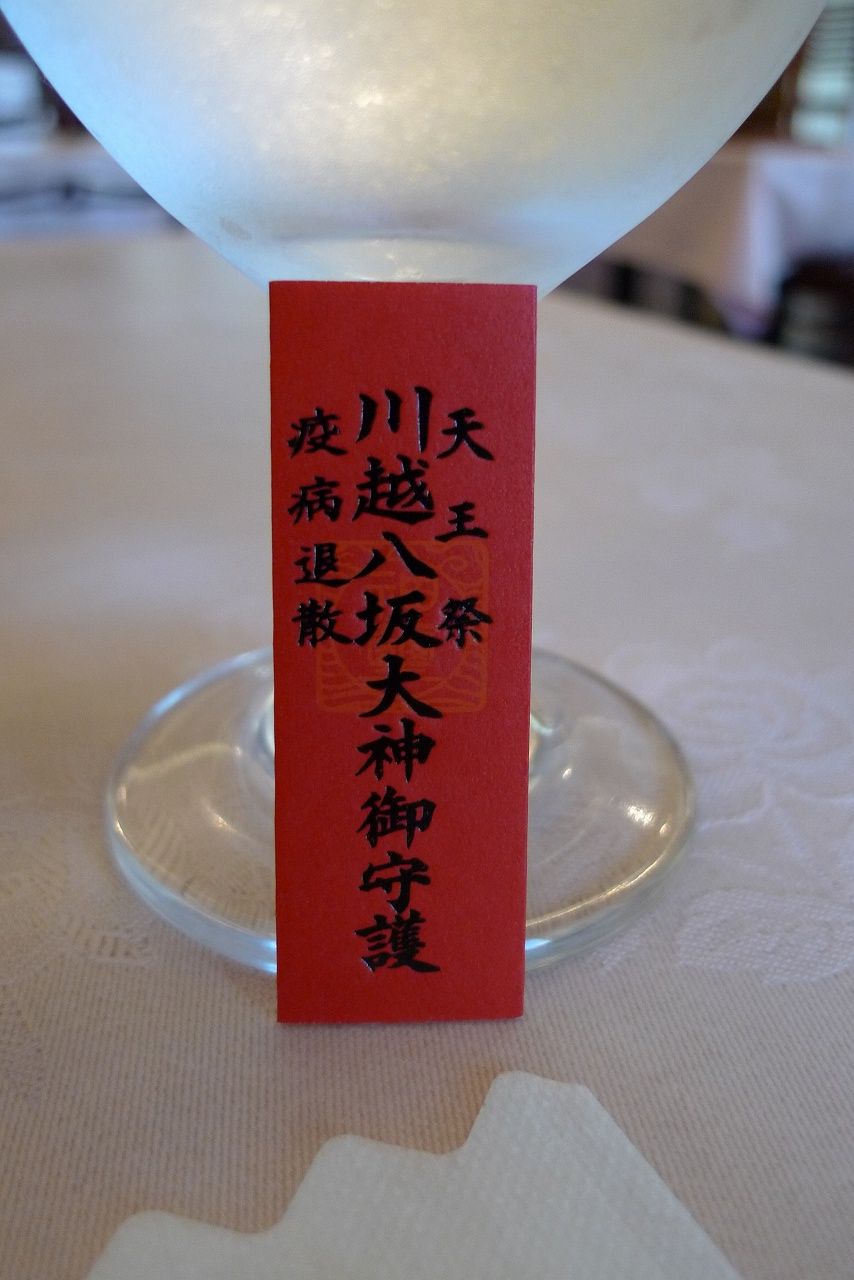 天王祭
川越八坂大神御守護
疫病退散